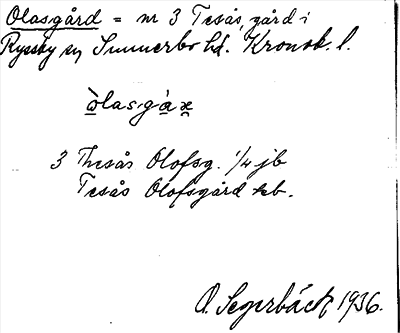 Olasgård = nr 3 Tesås, gård i
Ryssby sn Sunnerbo hd. Kronob. l.
òlasgàꭗ
3 Thesås Olofsg. 1/4 jb
Tesås Olofsgård kb.
O. Segerbäck 1936.